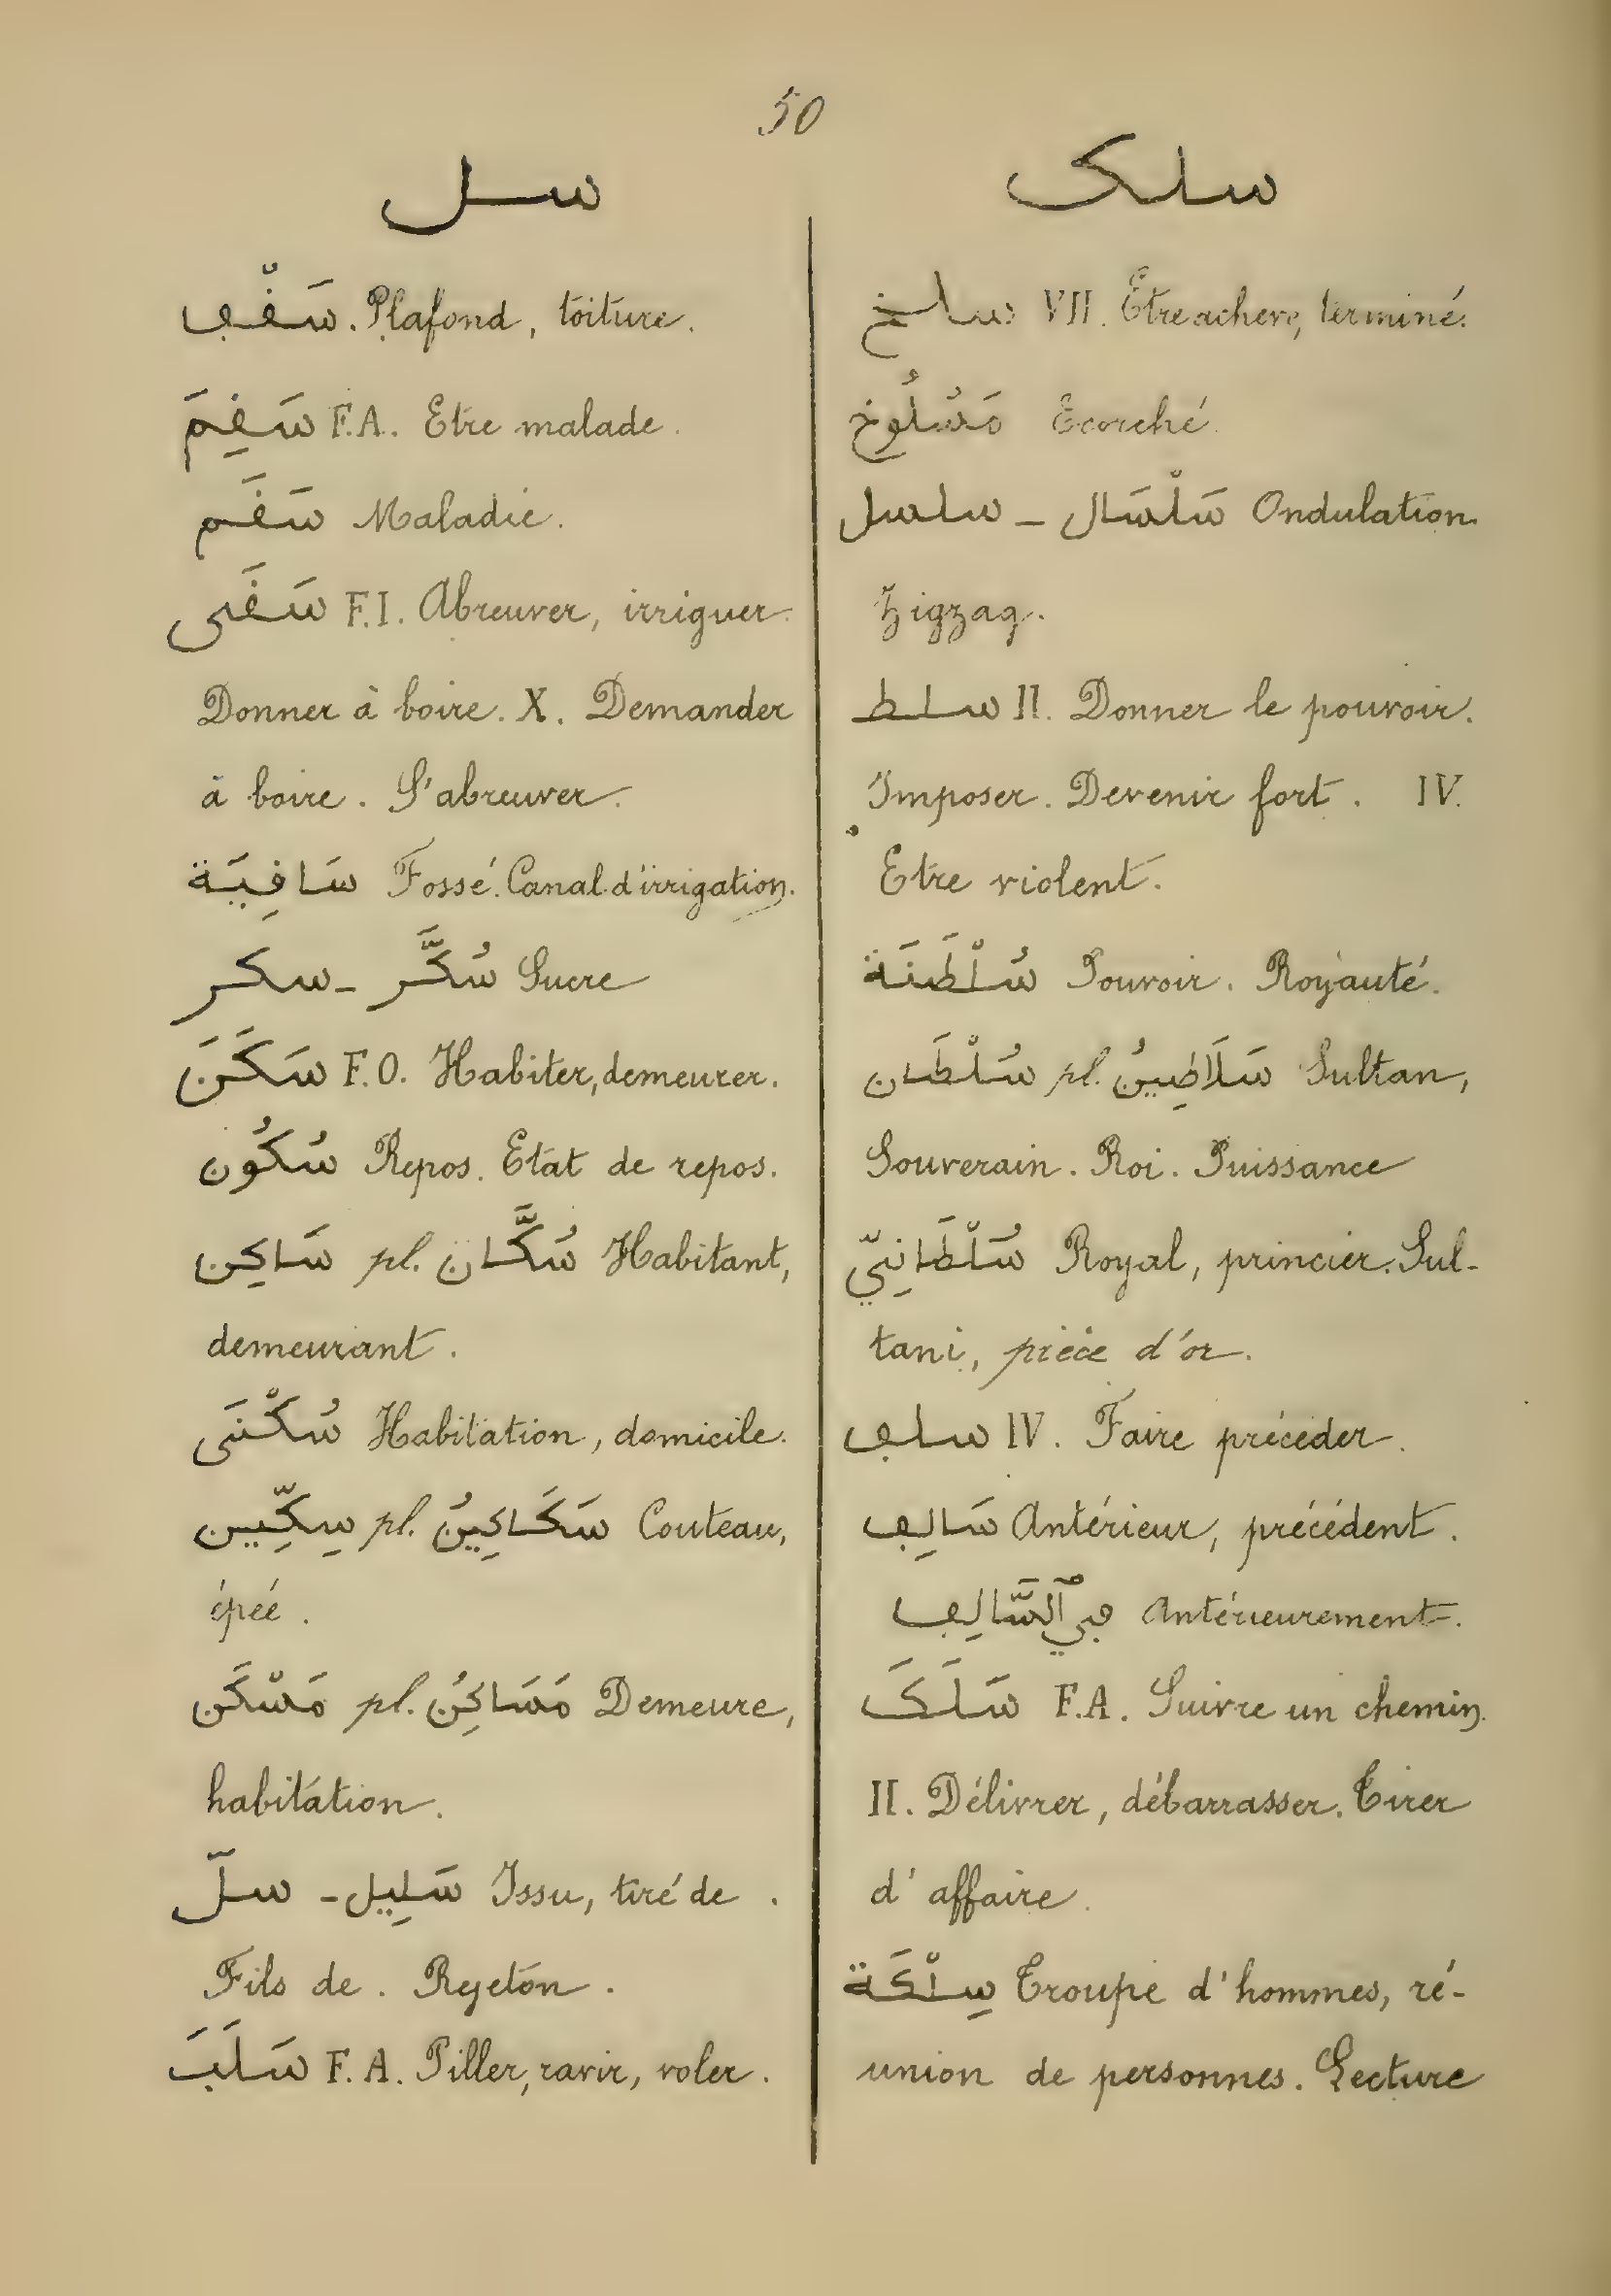 50
سل
سَقْف. Plafond, toiture.
سَقِمَ F.A. Etre malade.
سَقَم Maladie.
سَقَى F.I. Abreuver, irriguer.
Donner à boire. X. Demander
à boire. S'abreuver.
سَاقِيَة Fossé. Canal d'irrigation.
سكر - سُكَّر Sucre
سَكَنَ F.O. Habiter, demeurer.
سُكُون Repos. Etat de repos.
سَاكِن pl. سُكَّان Habitant,
demeurant.
سُكْنَى Habitation, domicile.
سِكِّين pl. سَكَاكِينُ Couteau,
épée.
مَسْكَن pl. مَسَاكِنُ Demeure,
habitation.
سلّ - سَلِيل Issu, tiré de.
Fils de. Rejeton.
سَلَبَ F.A. Piller, ravir, voler.
سلك
سلخ VII. Etre achevé, terminé.
مَسْلُوخ Ecorché.
سلسل - سَلْسَال Ondulation.
Zigzag.
سلط II. Donner le pouvoir.
Imposer. Devenir fort. IV.
Etre violent.
سُلْطَنَة Pouvoir. Royauté.
سُلْطَان pl. سَلَاطِينُ Sultan,
Souverain. Roi. Puissance
سُلْطَانِيّ Royal, princier. Sul-
tani, pièce d'or.
سلف IV. Faire précéder.
سَالِف Antérieur, précédent.
فِي ٱلسَّالِف Antérieurement.
سَلَكَ F.A. Suivre un chemin.
II. Délivrer, débarrasser. Tirer
d'affaire.
سِلْكَة Troupe d'hommes, ré-
union de personnes. Lecture